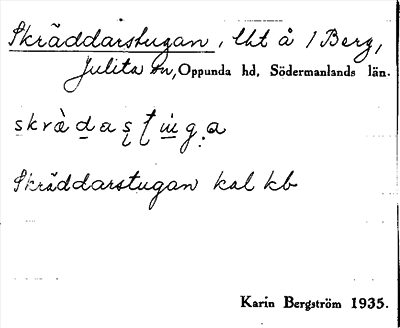 Skräddarstugan, lht å 1 Berg,
Julita sn, Oppunda hd, Södermanlands län.
Skräddarstugan kal kb
Karin Bergström 1935.